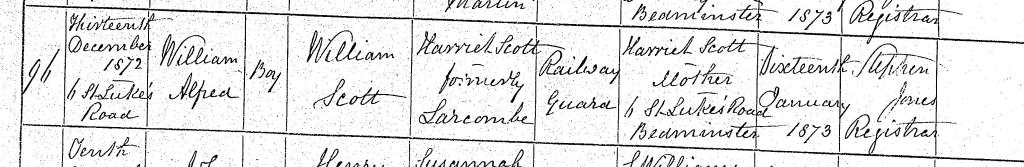 Martin
Bedminster 1873 Registrar
96
Thirteenth
December
1872
6 St Luke's
Road
William
Alfred
Boy
William
Scott
Harriet Scott
formerly
Larcombe
Railway
Guard
Harriet Scott
Mother
6 St Luke's Road
Bedminster
Sixteenth
January
1873
Stephen
Jones
Registrar
Tenth
Henry
Susannah
S Williams